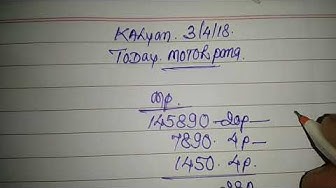 KALyan. 3/4/18.
TODAY. MOTOR pana.
mp.
145890 - 20p -
7890. 4p -
1450. 4p.